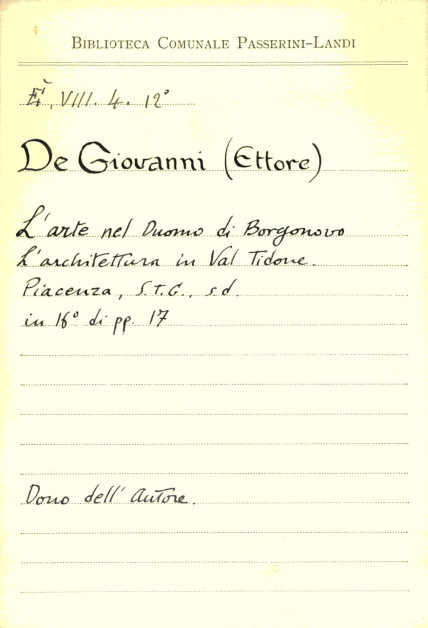 BIBLIOTECA COMUNALE PASSERINI-LANDI
È, VIII. 4. 12°
De Giovanni (Ettore)
L'arte nel Duomo di Borgonovo
L'architettura in Val Tidone.
Piacenza, S.T.G., s.d.
in 16° di pp. 17
Dono dell'Autore.